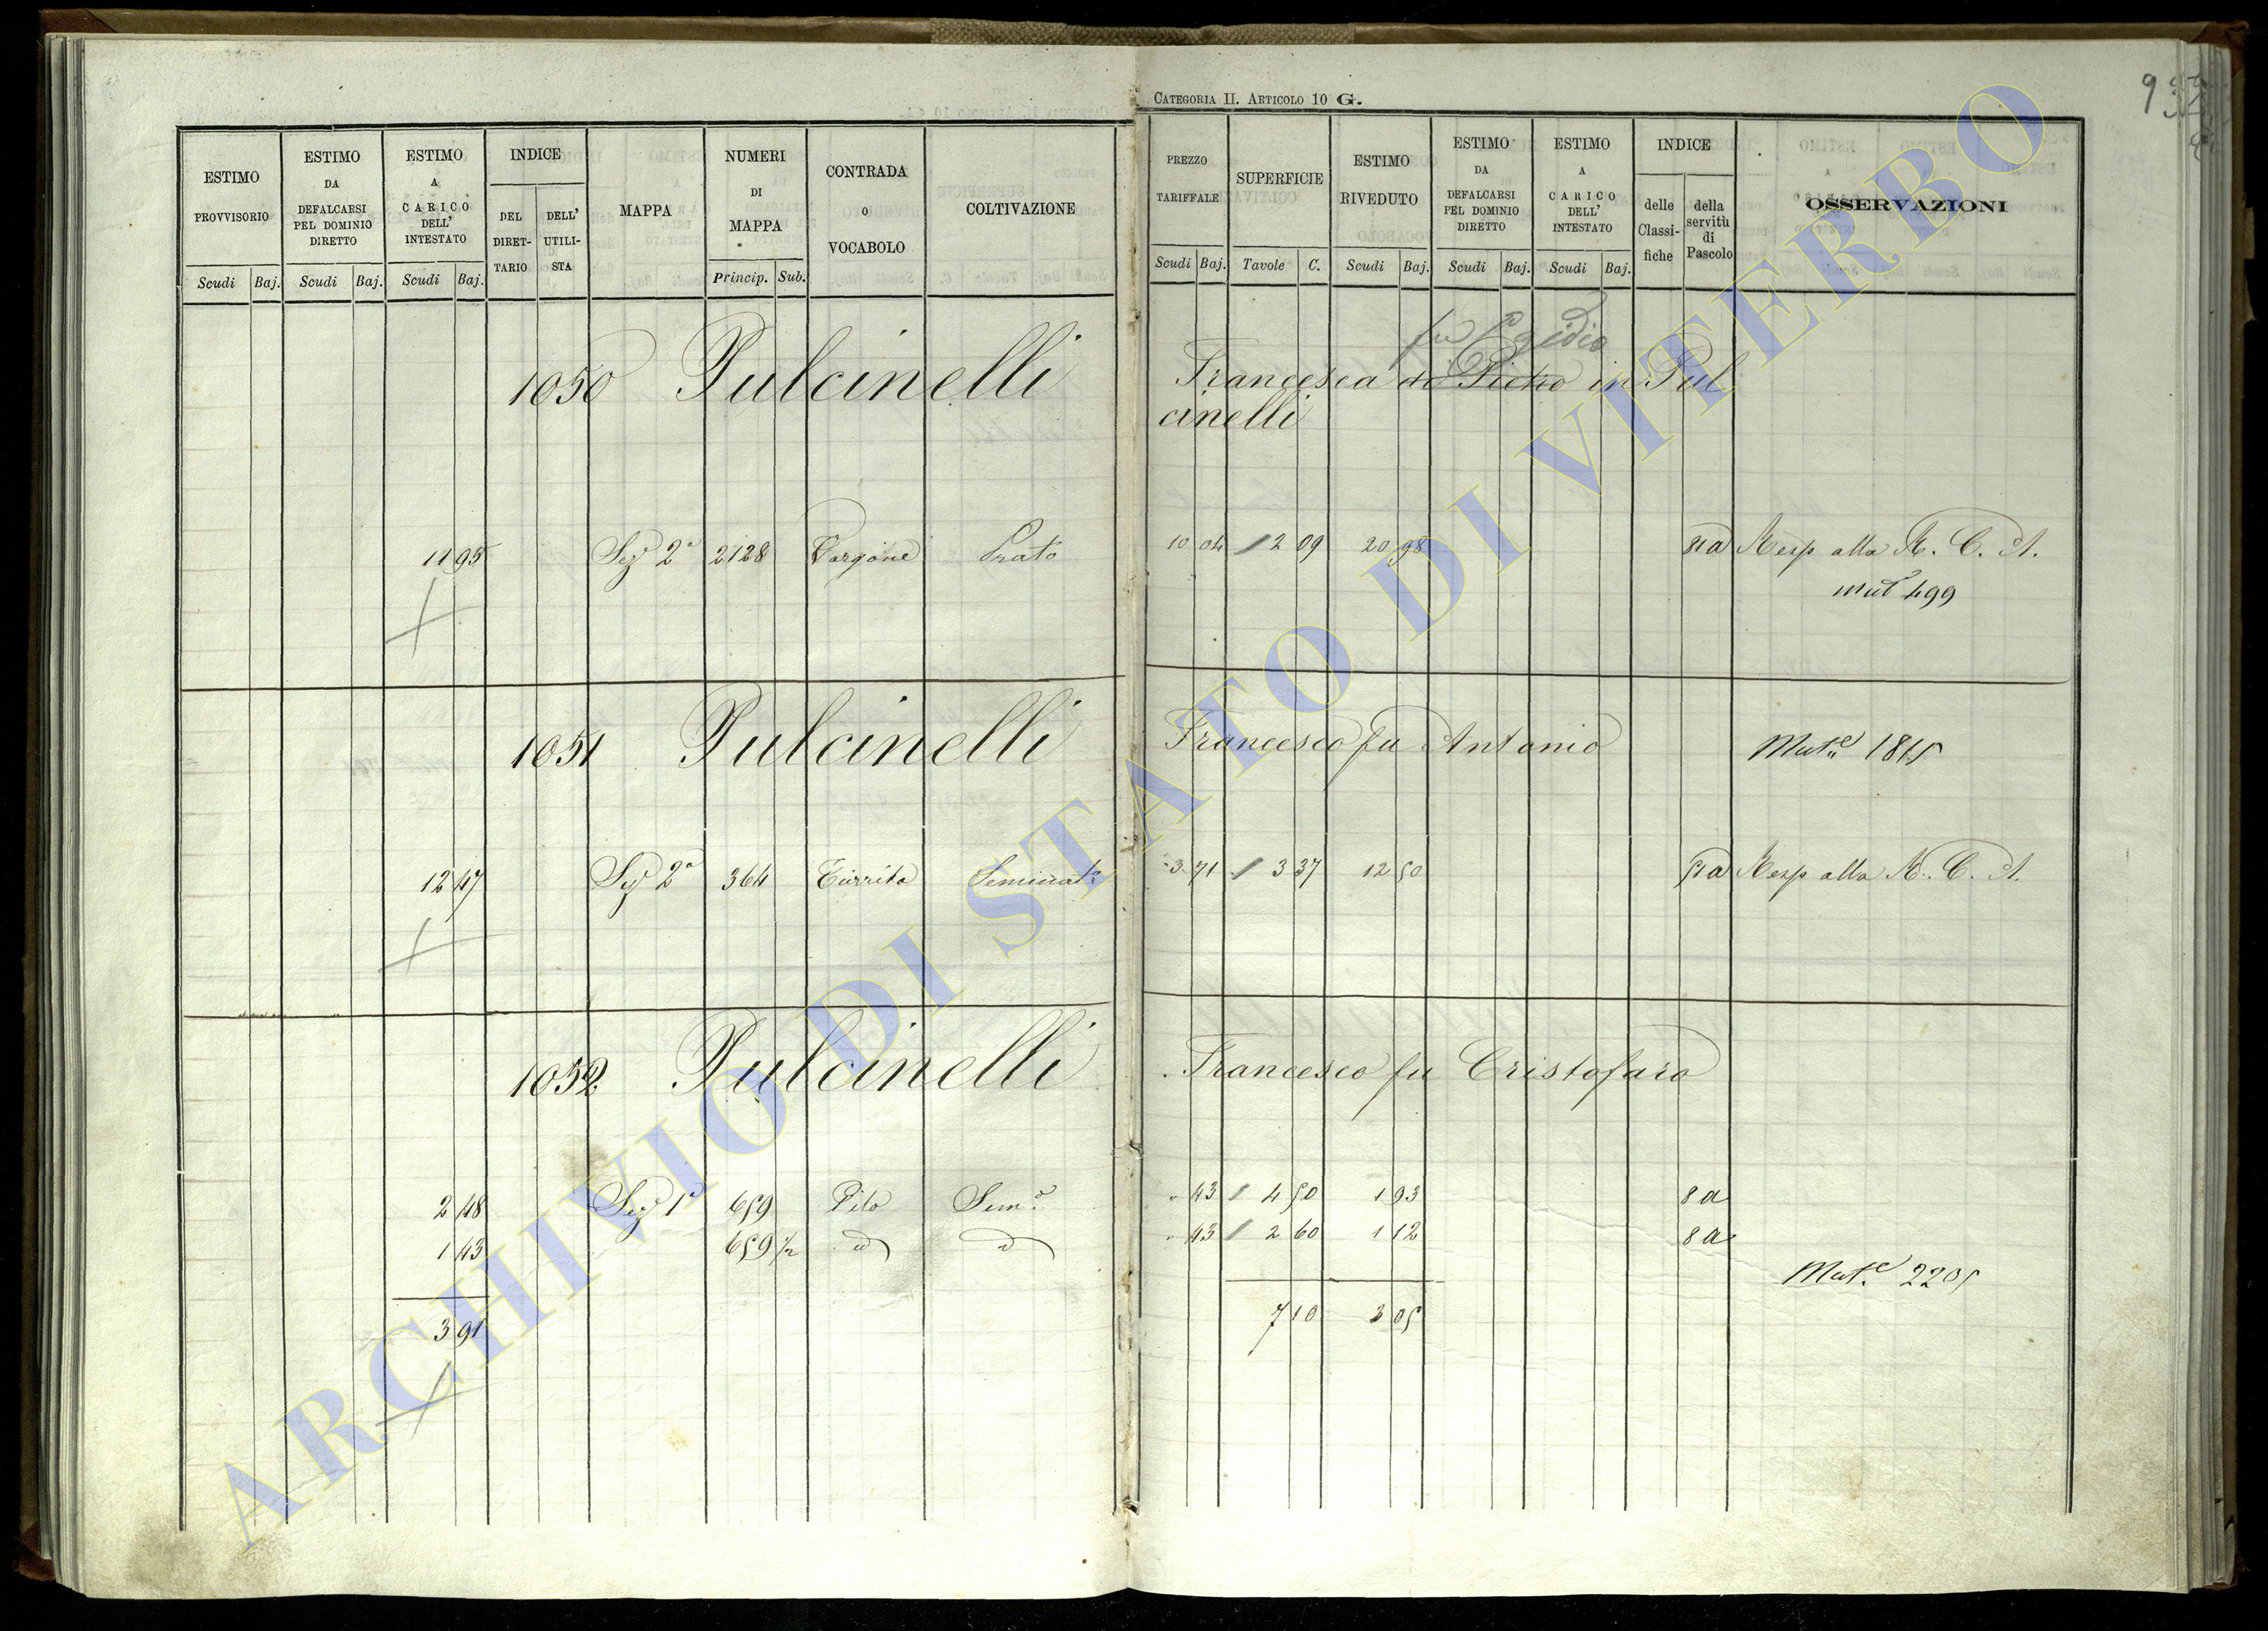 CATEGORIA II. ARTICOLO 10 G.
ESTIMO PROVVISORIO
ESTIMO DA DEFALCARSI PEL DOMINIO DIRETTO
ESTIMO A CARICO DELL' INTESTATO
INDICE
DEL DIRET-TARIO
DELL' UTILI-STA
MAPPA
NUMERI DI MAPPA
CONTRADA O VOCABOLO
COLTIVAZIONE
Scudi Baj. Scudi Baj. Scudi Baj. Princip. Sub.
PREZZO TARIFFALE
SUPERFICIE
ESTIMO RIVEDUTO
ESTIMO DA DEFALCARSI PEL DOMINIO DIRETTO
ESTIMO A CARICO DELL' INTESTATO
INDICE
delle Classi-fiche
della servitù di Pascolo
OSSERVAZIONI
Scudi Baj. Tavole C. Scudi Baj. Scudi Baj. Scudi Baj.
fu Egidio
1050 Pulcinelli Francesca di Pietro in Pul
cinelli
11 95 Sez 2a 2128 Prato 10 04 2 09 20 98 a Resp alla R. C. A.
mut 499
1051 Pulcinelli Francesco fu Antonio Mut.e 1815
12 47 Sez 2a 364 Turrita Seminato 3 71 3 37 12 50 a Resp alla R. C. A.
1052 Pulcinelli Francesco fu Cristofaro
2 48 Sez 1a 659 Pilo Sem.o " 43 4 50 1 93 8 a
1 43 659 1/2 d d " 43 2 60 1 12 8 a
Mut.e 2205
3 91 7 10 3 05
ARCHIVIO DI STATO DI VITERBO